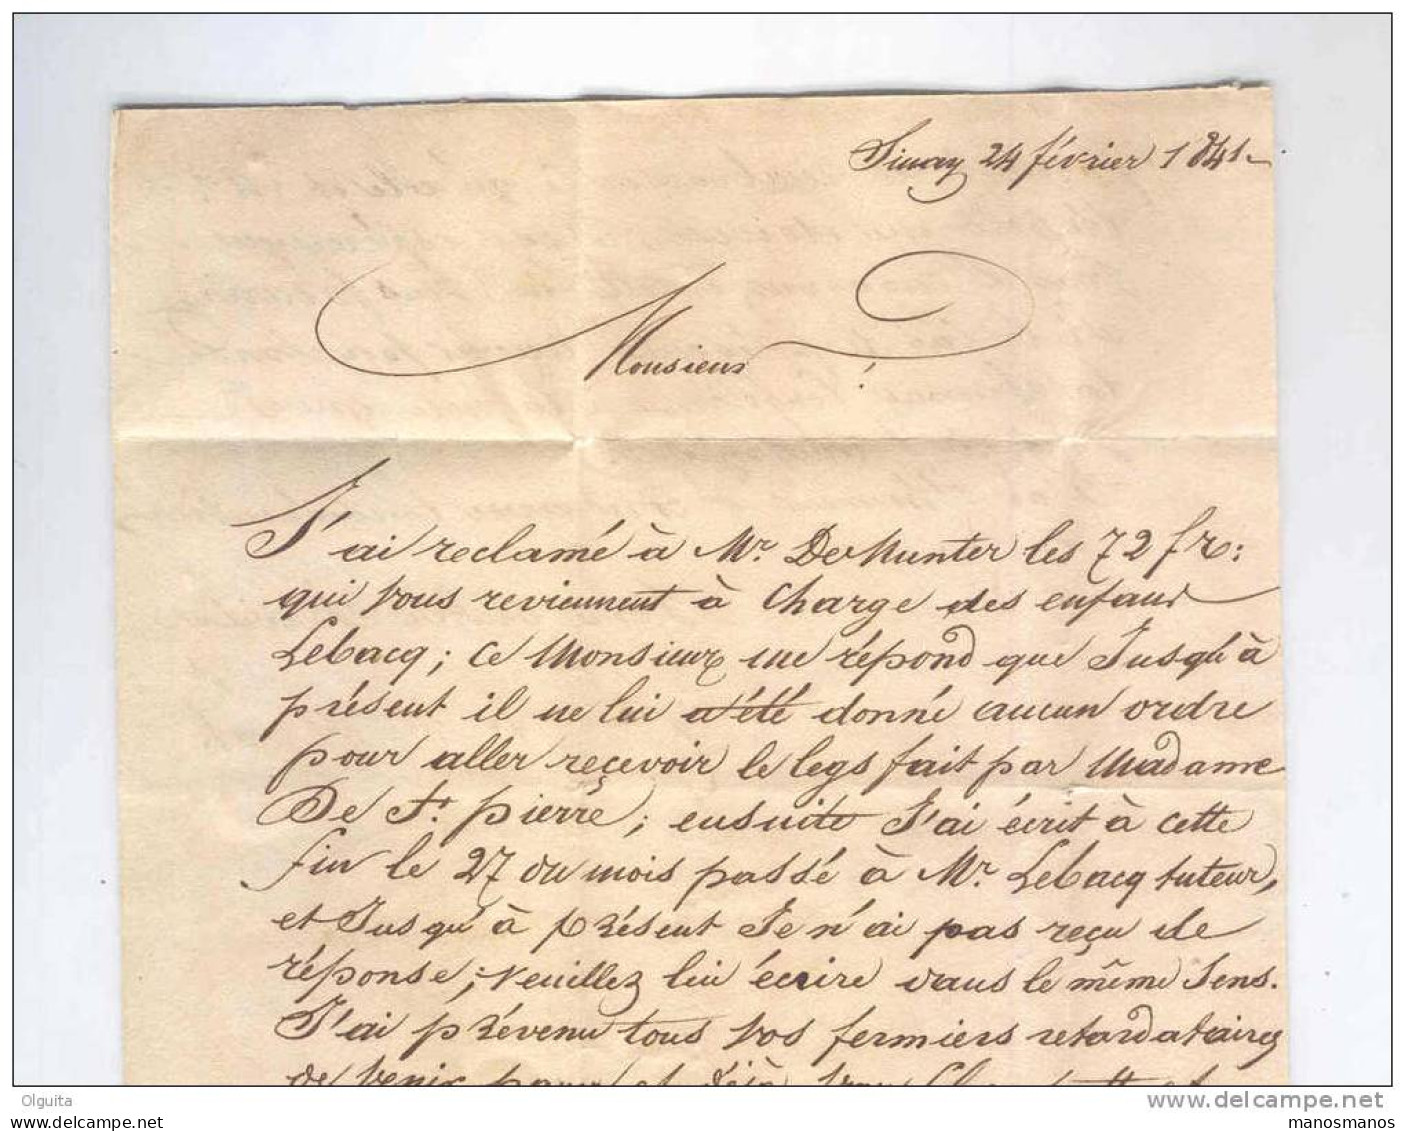 Sinay 24 février 1841-
Monsieur !
J'ai reclamé à Mr. De Munter les 72 fr:
qui vous reviennent à Charge des enfans
Lebacq; ce Monsieur me répond que Jusqu'à
présent il ne lui a été donné aucun ordre
pour aller reçevoir le legs fait par Madame
De St. pierre; ensuite J'ai écrit à cette
fin le 27 du mois passé à Mr. Lebacq tuteur,
et Jusqu'à présent Je n'ai pas reçu de
réponse; veuillez lui écrire dans le même sens.
J'ai prévenu tous vos fermiers retardataires
de venir payer et déjà
Olguita
delcampe.net
manosmanos.com
manosmanos